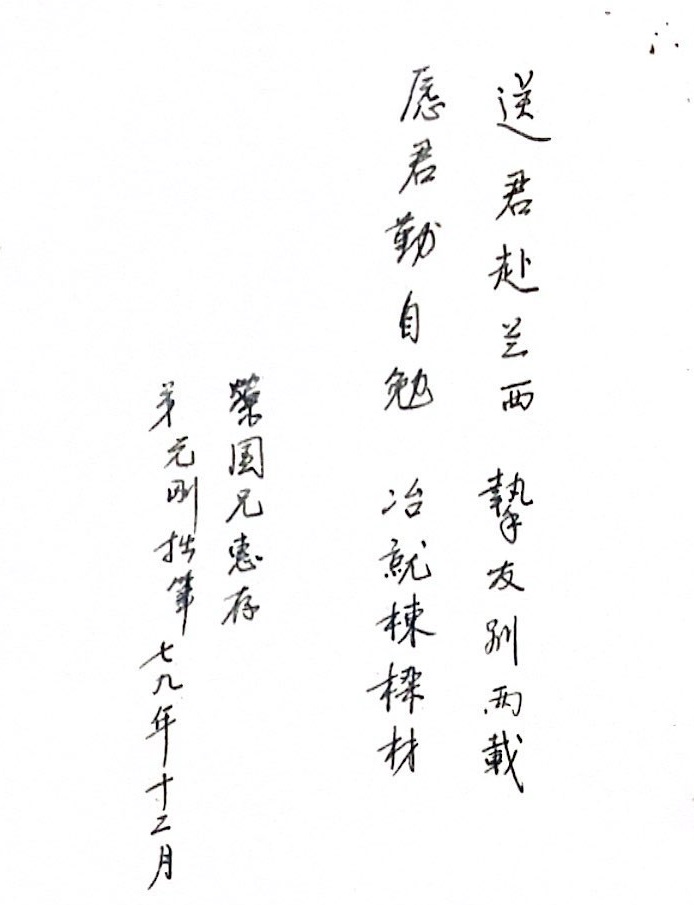 送君赴兰西 挚友别两载
愿君勤自勉 冶就栋樑材
荣国兄惠存
弟元刚拙笔 七九年十二月